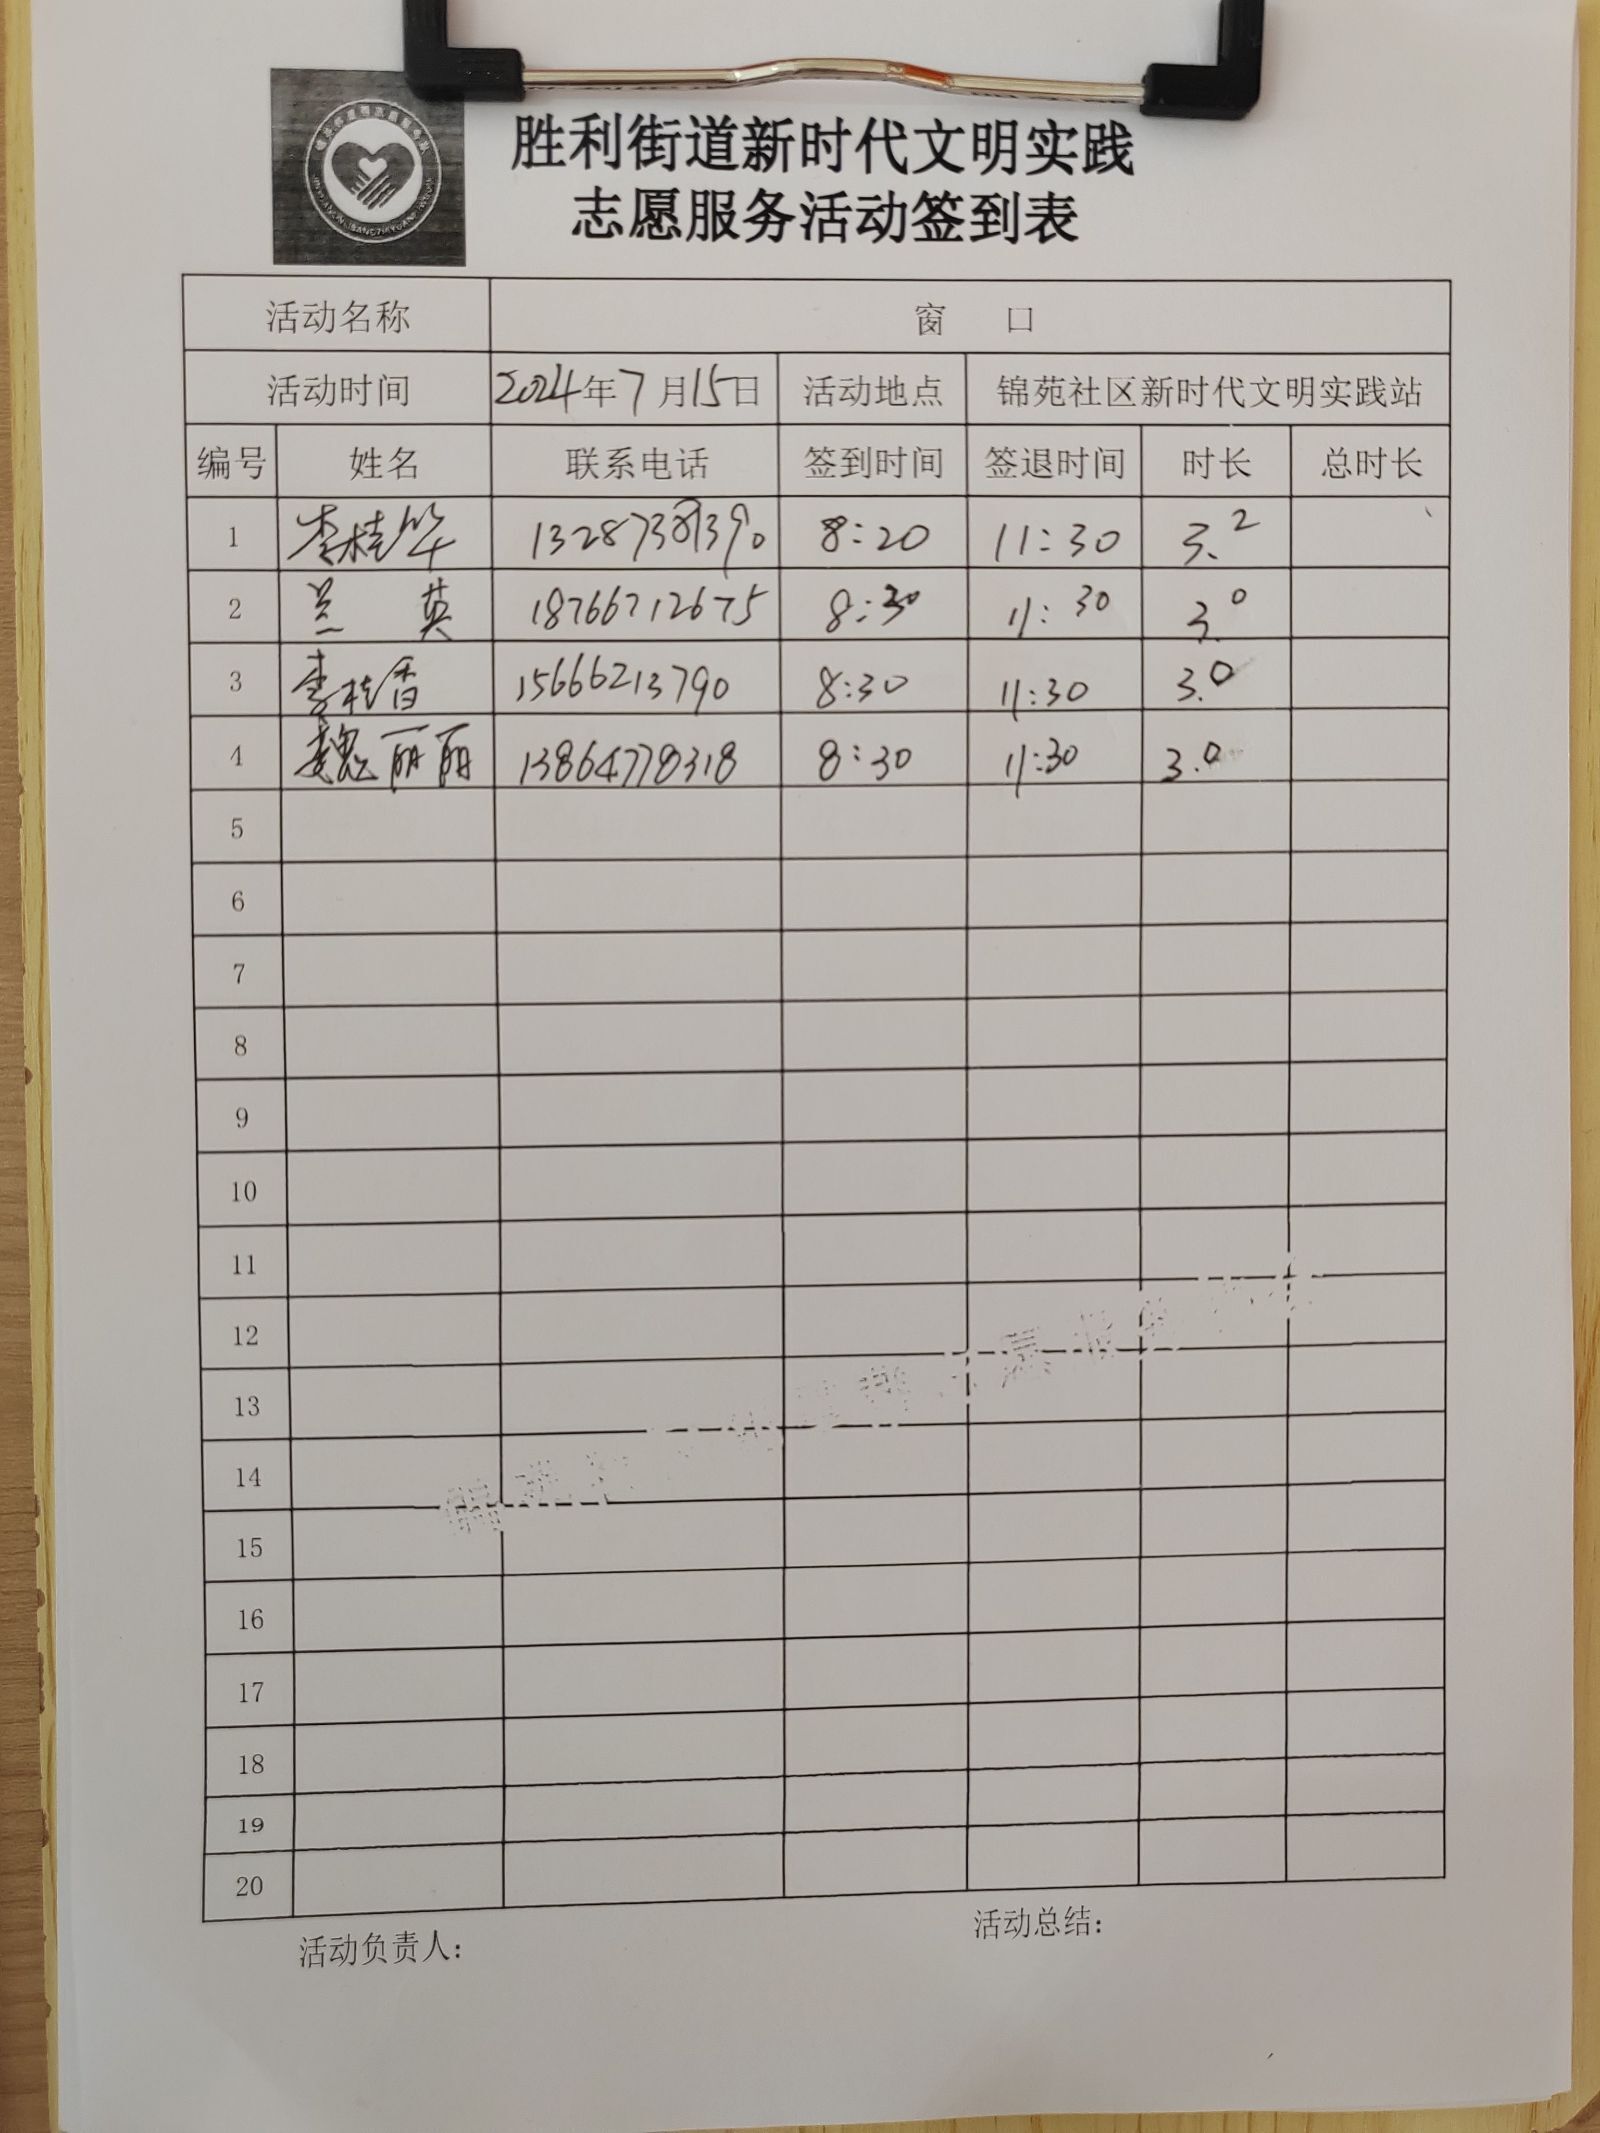 胜利街道新时代文明实践
志愿服务活动签到表
活动名称 窗 口
活动时间 2024年7月15日 活动地点 锦苑社区新时代文明实践站
编号 姓名 联系电话 签到时间 签退时间 时长 总时长
1 李桂华 13287381390 8:20 11:30 3.2
2 兰 英 18766712675 8:30 11:30 3.0
3 李桂香 15666213790 8:30 11:30 3.0
4 魏丽丽 13864778318 8:30 11:30 3.0
5
6
7
8
9
10
11
12
13
14
15
16
17
18
19
20
活动负责人: 活动总结: